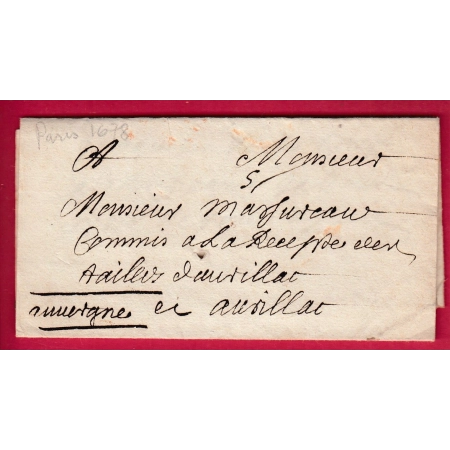 Paris 1678
A Monsieur
5
Monsieur Massureau
Commis a la Recepte des
tailles d'aurillac
auvergne a aurillac